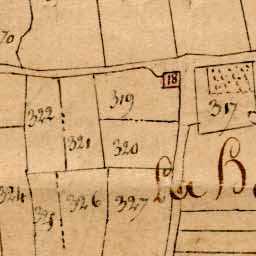 70
18
319
317
322
321
320
La B
324
325
326
327